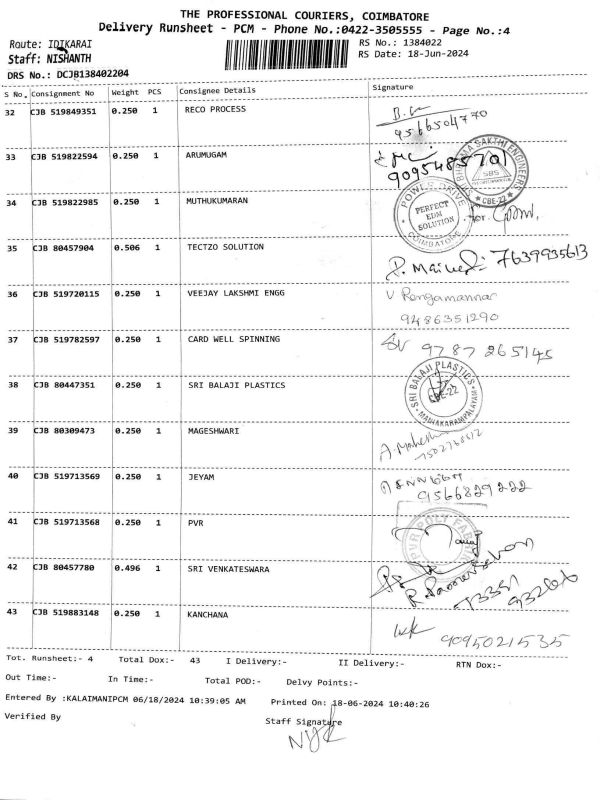 THE PROFESSIONAL COURIERS, COIMBATORE
Delivery Runsheet - PCM - Phone No.:0422-3505555 - Page No.:4
Route: IDIKARAI
RS No.: 1384022
Staff: NISHANTH
RS Date: 18-Jun-2024
DRS No.: DCJB138402204
S No. Consignment No Weight PCS Consignee Details Signature
32 CJB 519849351 0.250 1 RECO PROCESS
9566504770
33 CJB 519822594 0.250 1 ARUMUGAM
9095485701
SAKTHI ENGINEERS
SBS
CBE-22
34 CJB 519822985 0.250 1 MUTHUKUMARAN
PERFECT
EDM
SOLUTION
COIMBATORE
35 CJB 80457904 0.506 1 TECTZO SOLUTION
7639935613
36 CJB 519720115 0.250 1 VEEJAY LAKSHMI ENGG
V Rengamannar
9486351290
37 CJB 519782597 0.250 1 CARD WELL SPINNING
9787265145
38 CJB 80447351 0.250 1 SRI BALAJI PLASTICS
SRI BALAJI PLASTICS
CBE-22
MANIAKARAMPALAYAM
39 CJB 80309473 0.250 1 MAGESHWARI
40 CJB 519713569 0.250 1 JEYAM
9566829222
41 CJB 519713568 0.250 1 PVR
42 CJB 80457780 0.496 1 SRI VENKATESWARA
43 CJB 519883148 0.250 1 KANCHANA
9095021535
Tot. Runsheet:- 4 Total Dox:- 43 I Delivery:- II Delivery:- RTN Dox:-
Out Time:- In Time:- Total POD:- Delvy Points:-
Entered By :KALAIMANIPCM 06/18/2024 10:39:05 AM Printed On: 18-06-2024 10:40:26
Verified By Staff Signature